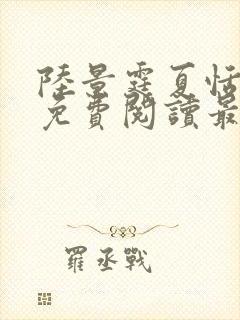 陸景霆夏恬
免費閱讀最
羅丞戰